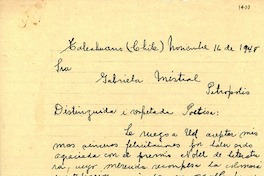 Talcahuano (Chile) Noviembre 16 de 1945
Sra
Gabriela Mistral
Petropolis
Distinguida i respetada Poetisa:
Le ruego a Ud aceptar mis
mas sinceras felicitaciones por haber sido
agraciada con el premio Nobel de literatu
ra, cuya merecida recompensa ha colmado